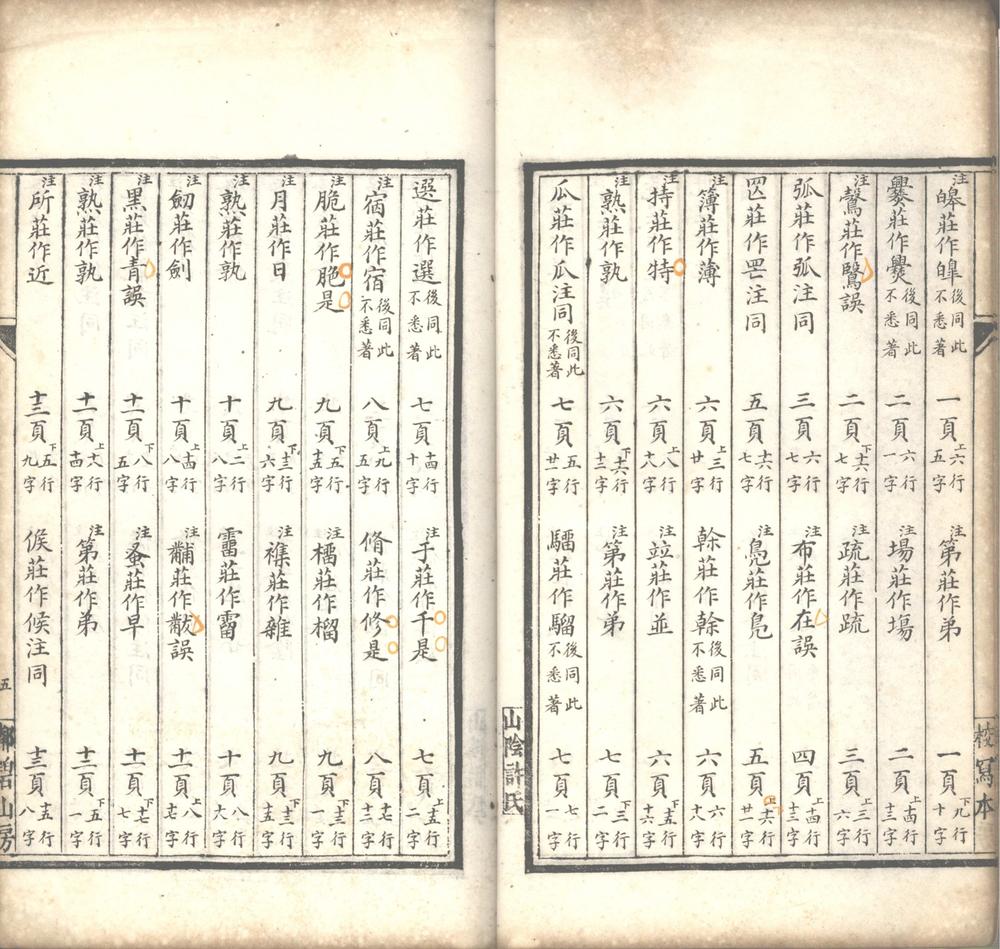 注皞莊作皡後同此不悉著 一頁上六行五字 注第莊作弟 一頁下九行十字
爨莊作爨後同此不悉著 二頁六行一字 注場莊作塲 二頁上十四行十三字
注鷖莊作鷖誤 二頁下十六行七字 注疏莊作疏 三頁上三行六字
弧莊作弧注同 三頁六行廿七字 注布莊作在誤 四頁上十四行十三字
罡莊作罡注同 五頁十六行七字 注鳬莊作鳬 五頁上十六行廿一字
注簿莊作薄 六頁上三行廿字 榦莊作幹後同此不悉著 六頁六行十八字
注持莊作特 六頁上八行十八字 注竝莊作並 六頁下十五行十六字
注熟莊作孰 六頁下十六行十三字 注第莊作弟 七頁下三行二字
瓜莊作瓜注同後同此不悉著 七頁五行廿一字 驑莊作騮後同此不悉著 七頁七行一字
山陰許氏
校寫本
選莊作選後同此不悉著 七頁十四行十字 注于莊作千是 七頁上十五行二字
注宿莊作宿後同此不悉著 八頁上九行十五字 脩莊作修是 八頁十七行十三字
注脆莊作脃是 九頁下五行十五字 注橊莊作榴 九頁下十三行一字
注月莊作日 九頁下十三行六字 注襍莊作雜 九頁下十三行十五字
注熟莊作孰 十頁上二行八字 靁莊作雷 十頁八行十六字
注劒莊作劍 十頁上十四行八字 注黼莊作黻誤 十一頁上八行十七字
注黑莊作青誤 十一頁下八行五字 注蚤莊作早 十一頁下十七行七字
注熟莊作孰 十二頁上十六行十四字 注第莊作弟 十二頁下五行一字
注所莊作近 十三頁下五行九字 候莊作候注同 十三頁十五行八字
五